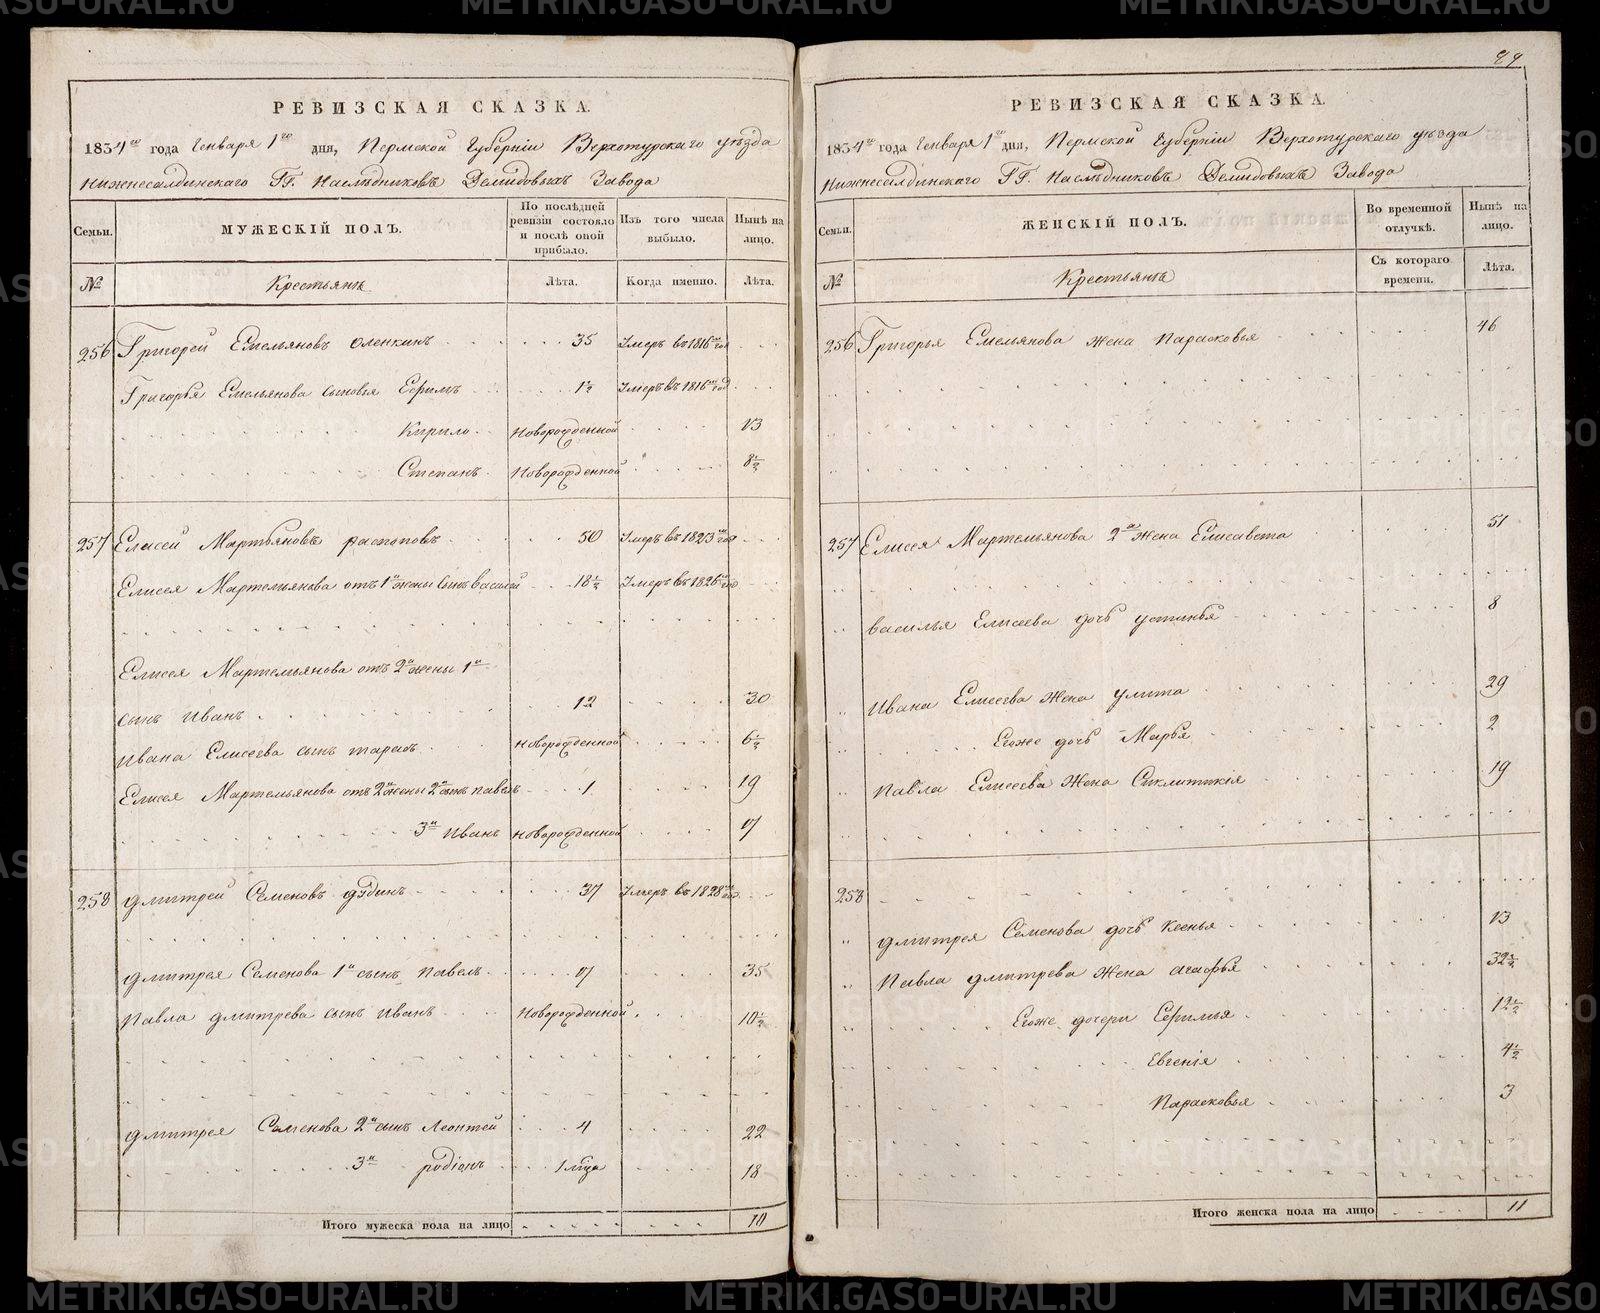 РЕВИЗСКАЯ СКАЗКА.
1834го года Генваря 1го дня, Пермской Губерніи Верхотурскаго уѣзда
Нижнесалдинскаго ГГ. Наслѣдниковъ Демидовыхъ Завода
Семьи. МУЖЕСКІЙ ПОЛЪ. По послѣдней ревизіи состояло и послѣ оной прибыло. Изъ того числа выбыло. Нынѣ на лицо.
№ Крестьянъ Лѣта. Когда именно. Лѣта.
256 Григорей Емельяновъ Оленкинъ 35 Умеръ въ 1816м год
Григорья Емельянова сыновья Ефимъ 1½ Умеръ въ 1816м год
Кирило Новорожденной 13
Степанъ Новорожденной 8½
257 Елисей Мартьяновъ распоповъ 50 Умеръ въ 1823м год
Елисея Мартемьянова отъ 1й жены сынъ василей 18½ Умеръ въ 1826м год
Елисея Мартемьянова отъ 2й жены 1й
сынъ Иванъ 12 30
Ивана Елисеева сынъ тарасъ Новорожденной 6½
Елисея Мартемьянова отъ 2й жены 2й сынъ павелъ 1 19
3й Иванъ Новорожденной 17
258 Дмитрей Семеновъ дудинъ 37 Умеръ въ 1828м год
дмитрея Семенова 1й сынъ павелъ 17 35
Павла дмитрева сынъ Иванъ Новорожденной 10½
дмитрея Семенова 2й сынъ Леонтей 4 22
3й родіонъ 1 мѣца 18
Итого мужеска пола на лицо 10
РЕВИЗСКАЯ СКАЗКА.
1834го года Генваря 1го дня, Пермской Губерніи Верхотурскаго уѣзда
Нижнесалдинскаго ГГ. Наслѣдниковъ Демидовыхъ Завода
Семьи. ЖЕНСКІЙ ПОЛЪ. Во временной отлучкѣ. Нынѣ на лицо.
№ Крестьянъ Съ котораго времени. Лѣта.
256 Григорья Емельянова жена Парасковья 46
257 Елисея Мартемьянова 2я жена Елисавета 51
василья Елисеева дочь устинья 8
Ивана Елисеева жена улита 29
Егоже дочь Марья 2
Павла Елисеева жена Сиклитикія 19
258
дмитрея Семенова дочь Ксенья 13
Павла дмитрева жена агафья 32½
Егоже дочери Ефимья 12½
Евгенія 4½
Парасковья 3
Итого женска пола на лицо 11
METRIKI.GASO-URAL.RU